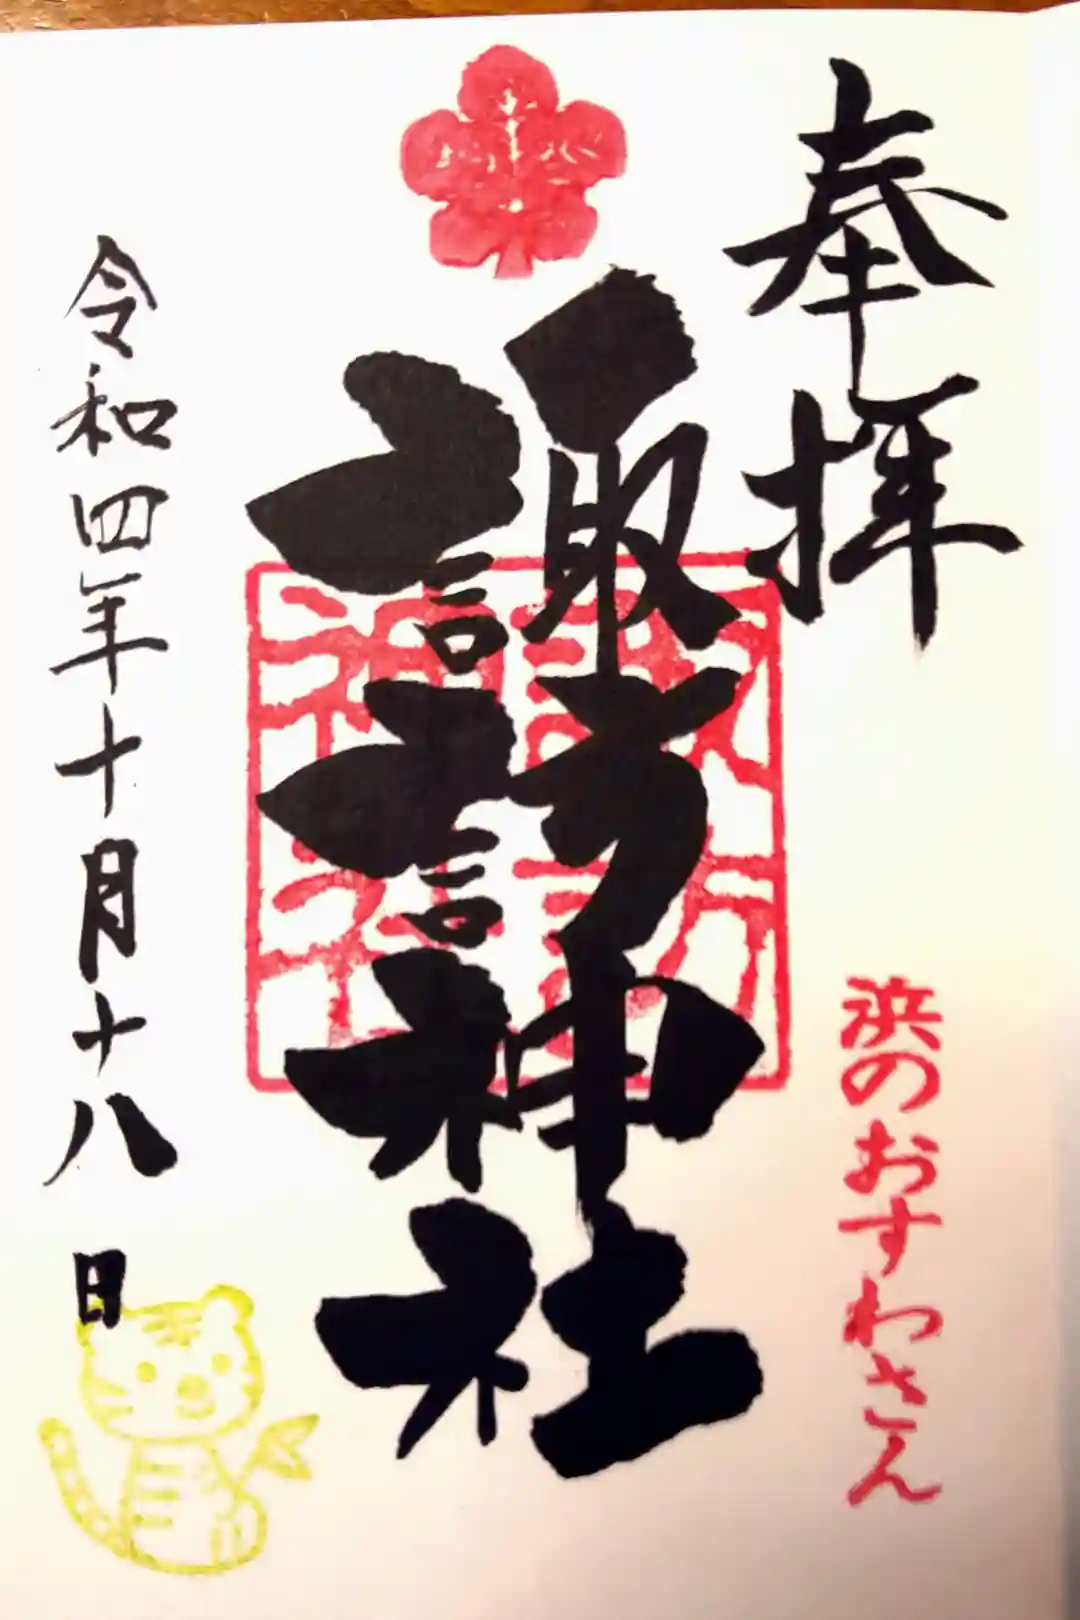 奉拝
諏訪神社
諏訪神社
浜のおすわさん
令和四年十月十八日